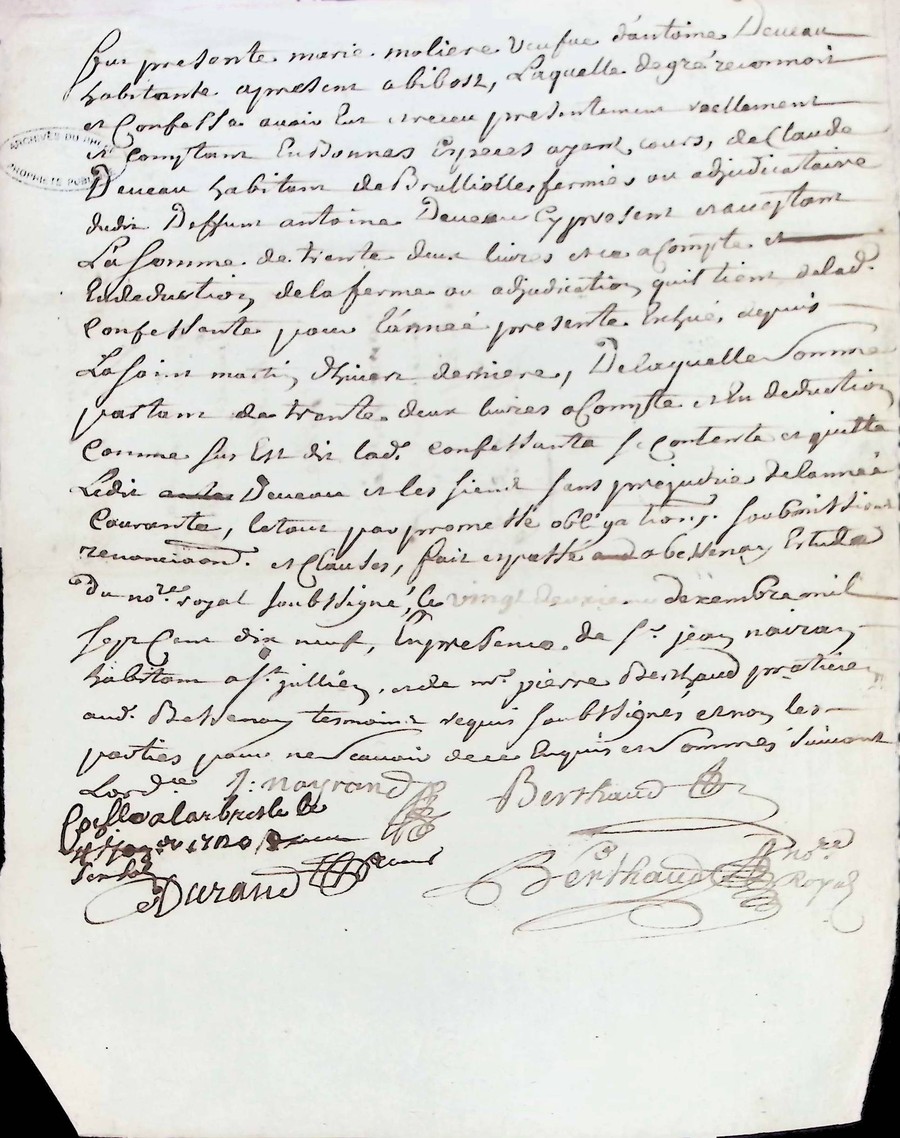 Fut presente marie moliere veufue d'antoine Deveau
habitante apresent a bibost, Laquelle de gré reconnoit
et Confesse avoir Eut et receu presentement reellement
et Comptant En bonnes Especes ayant cours, de Claude
ARCHIVES DU RHÔ
PROPRIÉTÉ PUBLI
Deveau habitant de Brulliolles fermier ou adjudicataire
dudit Deffunt antoine Deveau Cy present et acceptant
La somme de trente deux livres et ce a Compte et
En deduction de la ferme ou adjudication quil tient de lad.
Confessante pour l'année presente Echue, depuis
La saint martin d'hiver derniere, De laquelle somme
partant de trente deux livres a Compte et En deduction
Comme sus Est dit lad. confessante se Contente et quitte
Ledit Deveau et les siens sans prejudice de lannée
Courante, le tout par promesse obligations. soubmissions
renonciaons. et Clauses, fait et passé a bessenay Estude
Du nore. royal soubssigné, le vingt deuxieme dexembre mil
sept Cent dix neuf, En presence de sr. jean nairan
habitant a st. jullien, et de mr. pierre Berthaud praticien
aud. Bessenay tesmoins requis soubssignés et non les
parties pour ne scavoir de ce Enquis et sommes suivant
Lord.ce J: nayrand Berthaud
Collé a larbresle le
4e janer 1720
Durand
Berthaud nore Royal